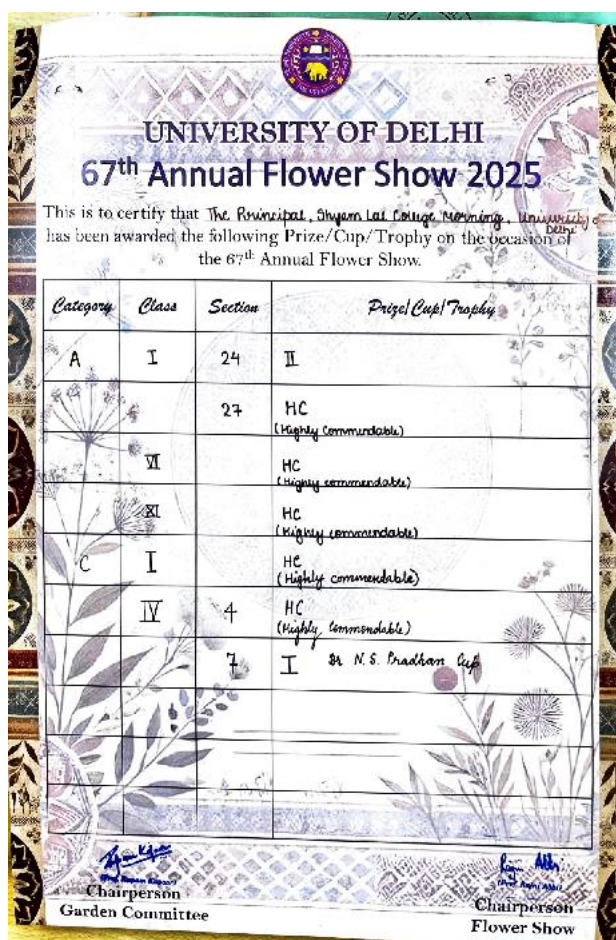 UNIVERSITY OF DELHI
67th Annual Flower Show 2025
This is to certify that The Principal, Shyam Lal College Morning, University of Delhi
has been awarded the following Prize/Cup/Trophy on the occasion of
the 67th Annual Flower Show.
Category Class Section Prize/Cup/Trophy
A I 24 II
27 HC
(Highly Commendable)
VI HC
(Highly commendable)
XI HC
(Highly commendable)
C I HC
(Highly commendable)
IV 4 HC
(Highly Commendable)
7 I Dr N.S. Pradhan Cup
Chairperson
Garden Committee
(Prof. Rajni Abbi)
Chairperson
Flower Show